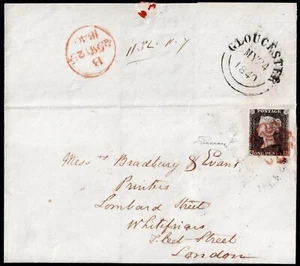 GLOUCESTER
MY 24
1840
B
POSTAGE
ONE PENNY
Messrs Bradbury & Evans
Printers
Lombard Street
Whitefriars
Fleet Street
London